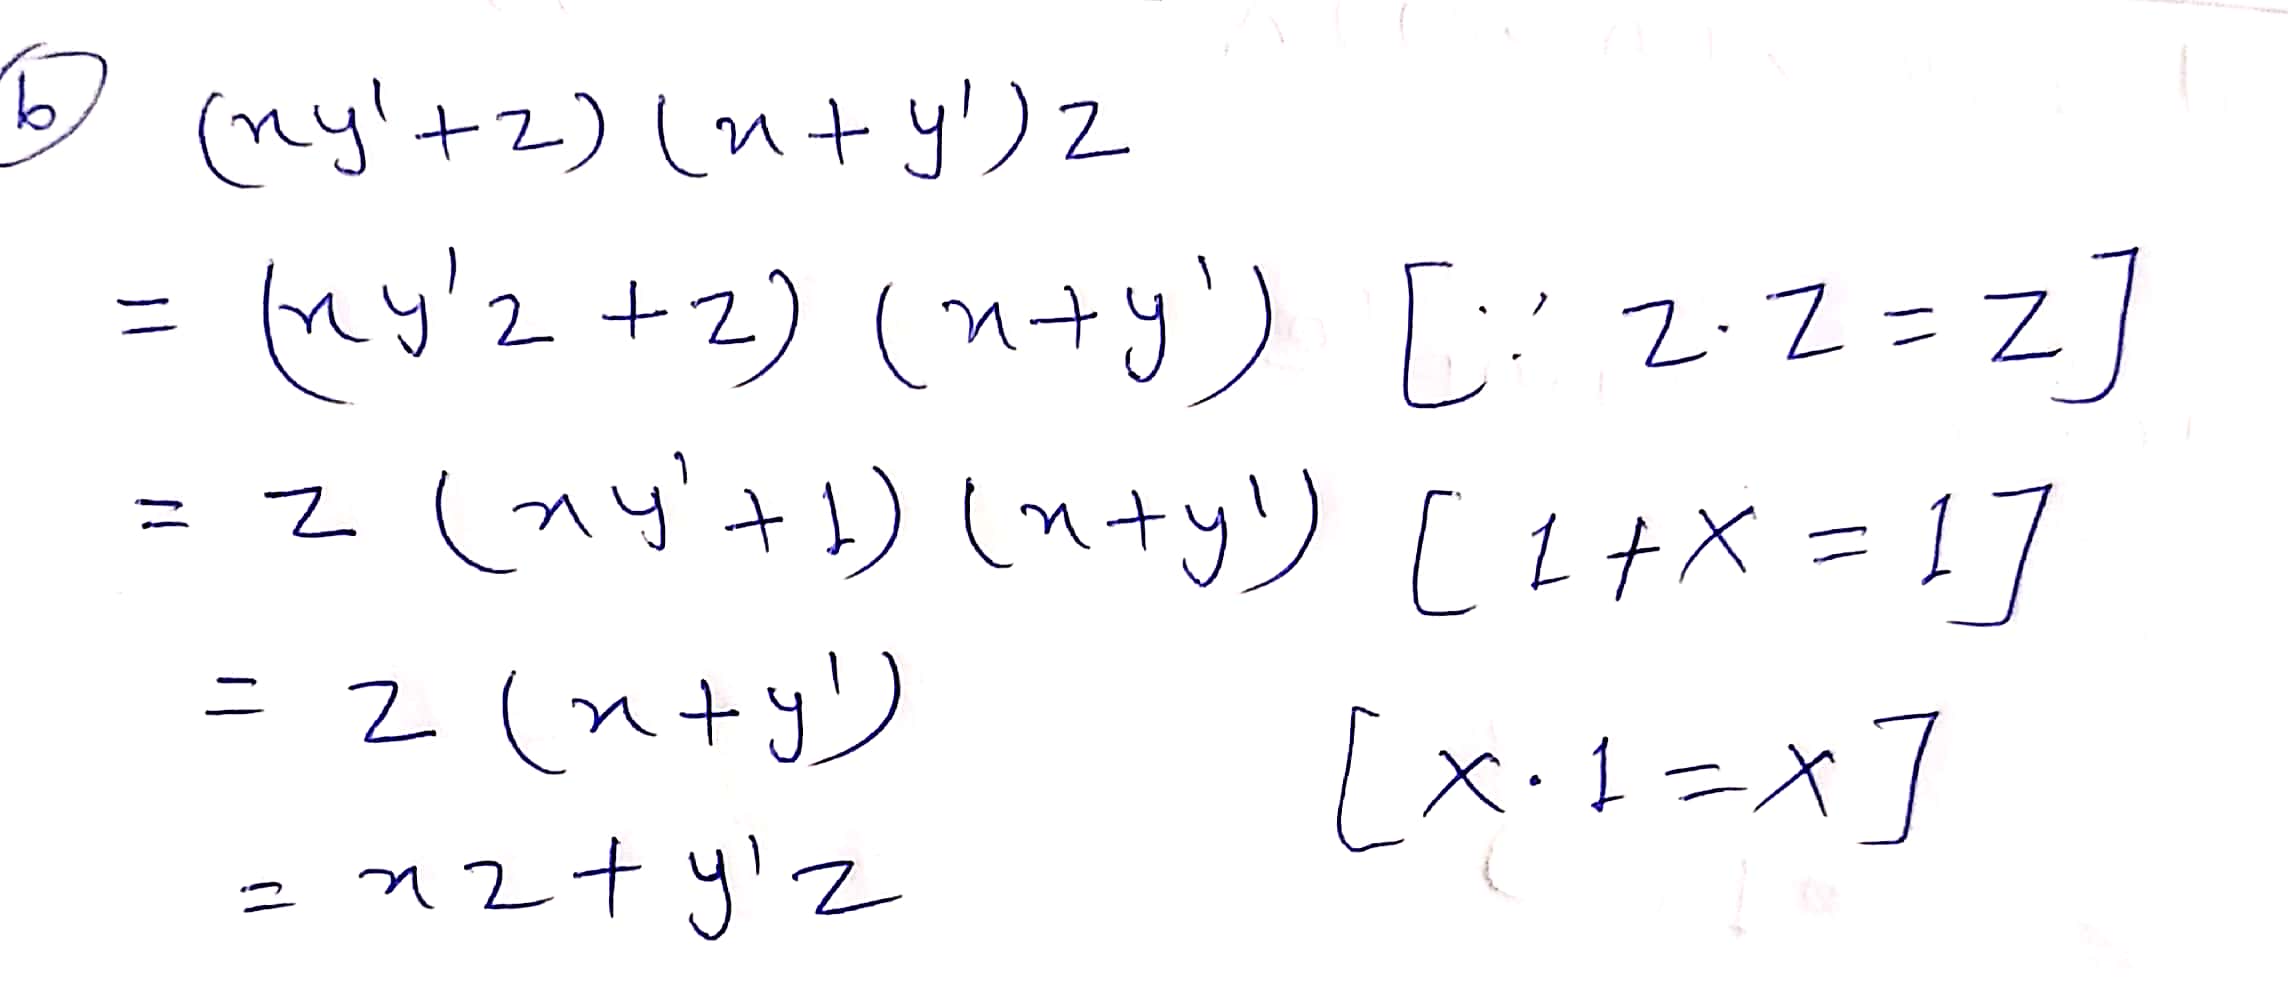 b (xy' + z) (x + y') z
= (xy'z + z) (x + y') [∵ z·z = z]
= z (xy' + 1) (x + y') [1 + X = 1]
= z (x + y') [X·1 = X]
= xz + y'z